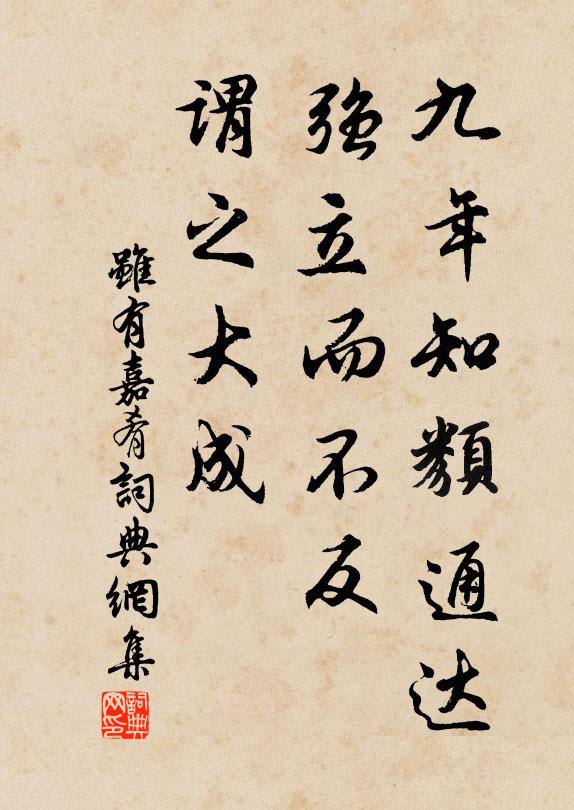 九年知類通达
強立而不反
谓之大成
雖有嘉肴詞典網集
詞典网印